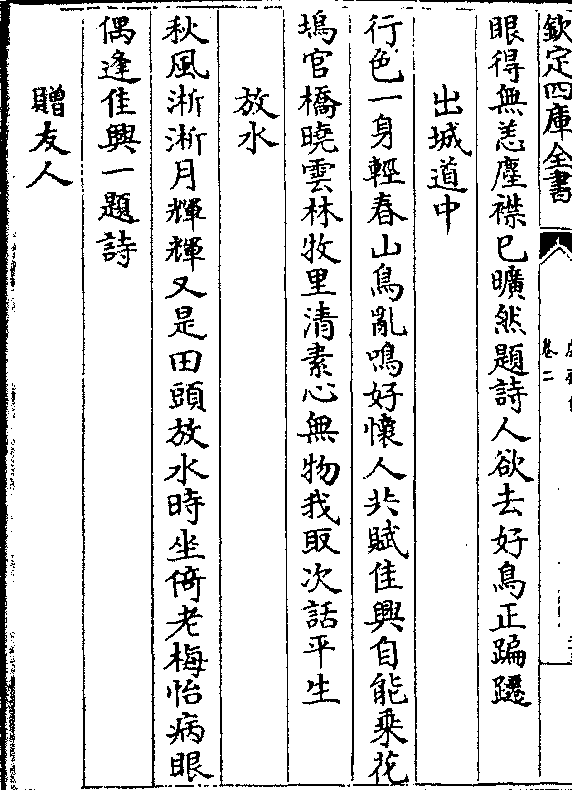 欽定四庫全書
卷二
眼得無恙塵襟已曠然題詩人欲去好鳥正蹁躚
出城道中
行色一身輕春山鳥亂鳴好懷人共賦佳興自能乘花
塢官橋曉雲林牧里清素心無物我取次話平生
放水
秋風淅淅月輝輝又是田頭放水時坐倚老梅怡病眼
偶逢佳興一題詩
贈友人